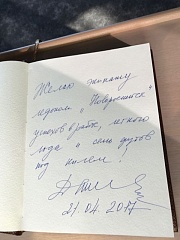 Желаю экипажу
ледокола „Новороссийск"
успехов в работе, легкого
льда и семь футов
под килем!
21.04.2017